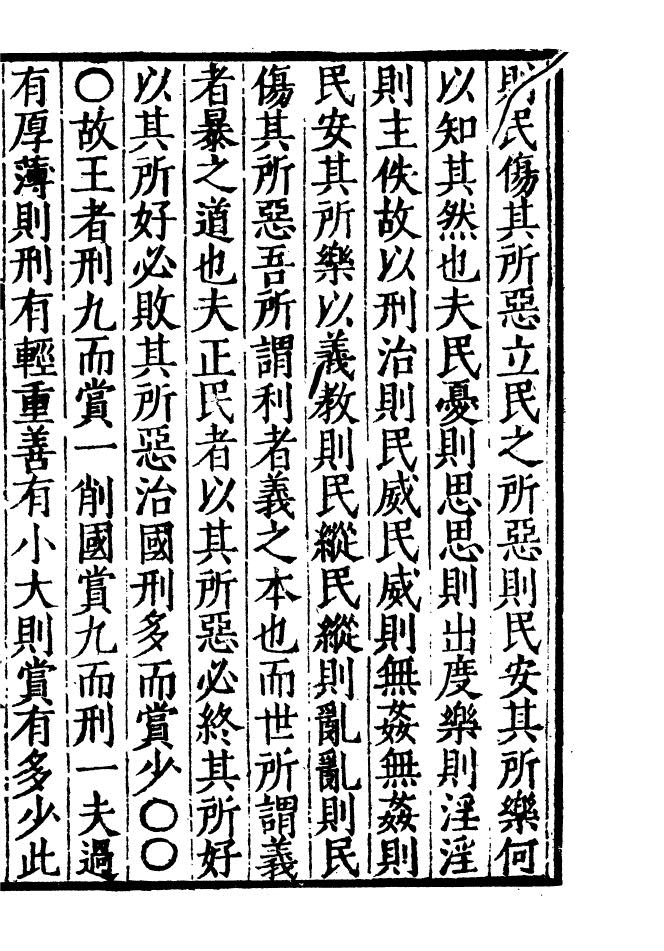 則民傷其所惡立民之所惡則民安其所樂何
以知其然也夫民憂則思思則出度樂則淫淫
則主佚故以刑治則民威民威則無姦無姦則
民安其所樂以義教則民縱民縱則亂亂則民
傷其所惡吾所謂利者義之本也而世所謂義
者暴之道也夫正民者以其所惡必終其所好
以其所好必敗其所惡治國刑多而賞少〇〇
〇故王者刑九而賞一削國賞九而刑一夫過
有厚薄則刑有輕重善有小大則賞有多少此